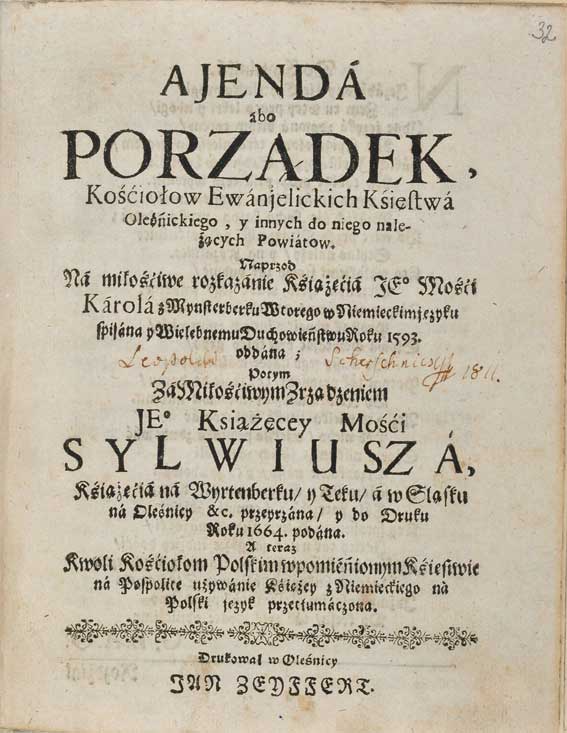 32
AJENDÁ
ábo
PORZĄDEK,
Kośćiołow Ewánjelickich Kśięstwá
Oleśnickiego, y innych do niego nale-
żących Powiátow.
Naprzod
Ná miłośćiwe rozkazánie Kśiążęćiá JEº Mośći
Károlá z Mynsterberku Wtorego w Niemieckim języku
spisána y Wielebnemu Duchowieństwu Roku 1593.
oddána;
Leopoldi Scherschnick 1811.
Potym
Zá Miłośćiwym Zrządzeniem
JEº Kśiążęcey Mośći
SYLWIUSZÁ,
Kśiążęćiá ná Wyrtenberku/ y Teku/ á w Sląsku
ná Oleśnicy &c. przeyrzána/ y do Druku
Roku 1664. podána.
A teraz
Kwoli Kośćiołom Polskim w pomieńionym Kśięstwie
ná Pospolite używánie Kśiężey z Niemieckiego ná
Polski język przetłumáczona.
Drukował w Oleśnicy
JAN ZEYFFERT.